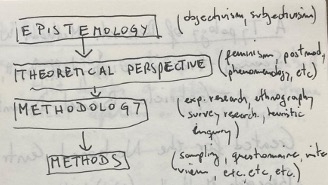 EPISTEMOLOGY (objectivism, subjectivism)
THEORETICAL PERSPECTIVE (feminism, postmod,
phenomenology, etc)
METHODOLOGY (exp. research, ethnography
survey research, heuristic
enquiry)
METHODS (sampling, questionnaire, inte
view, etc. etc. etc.)